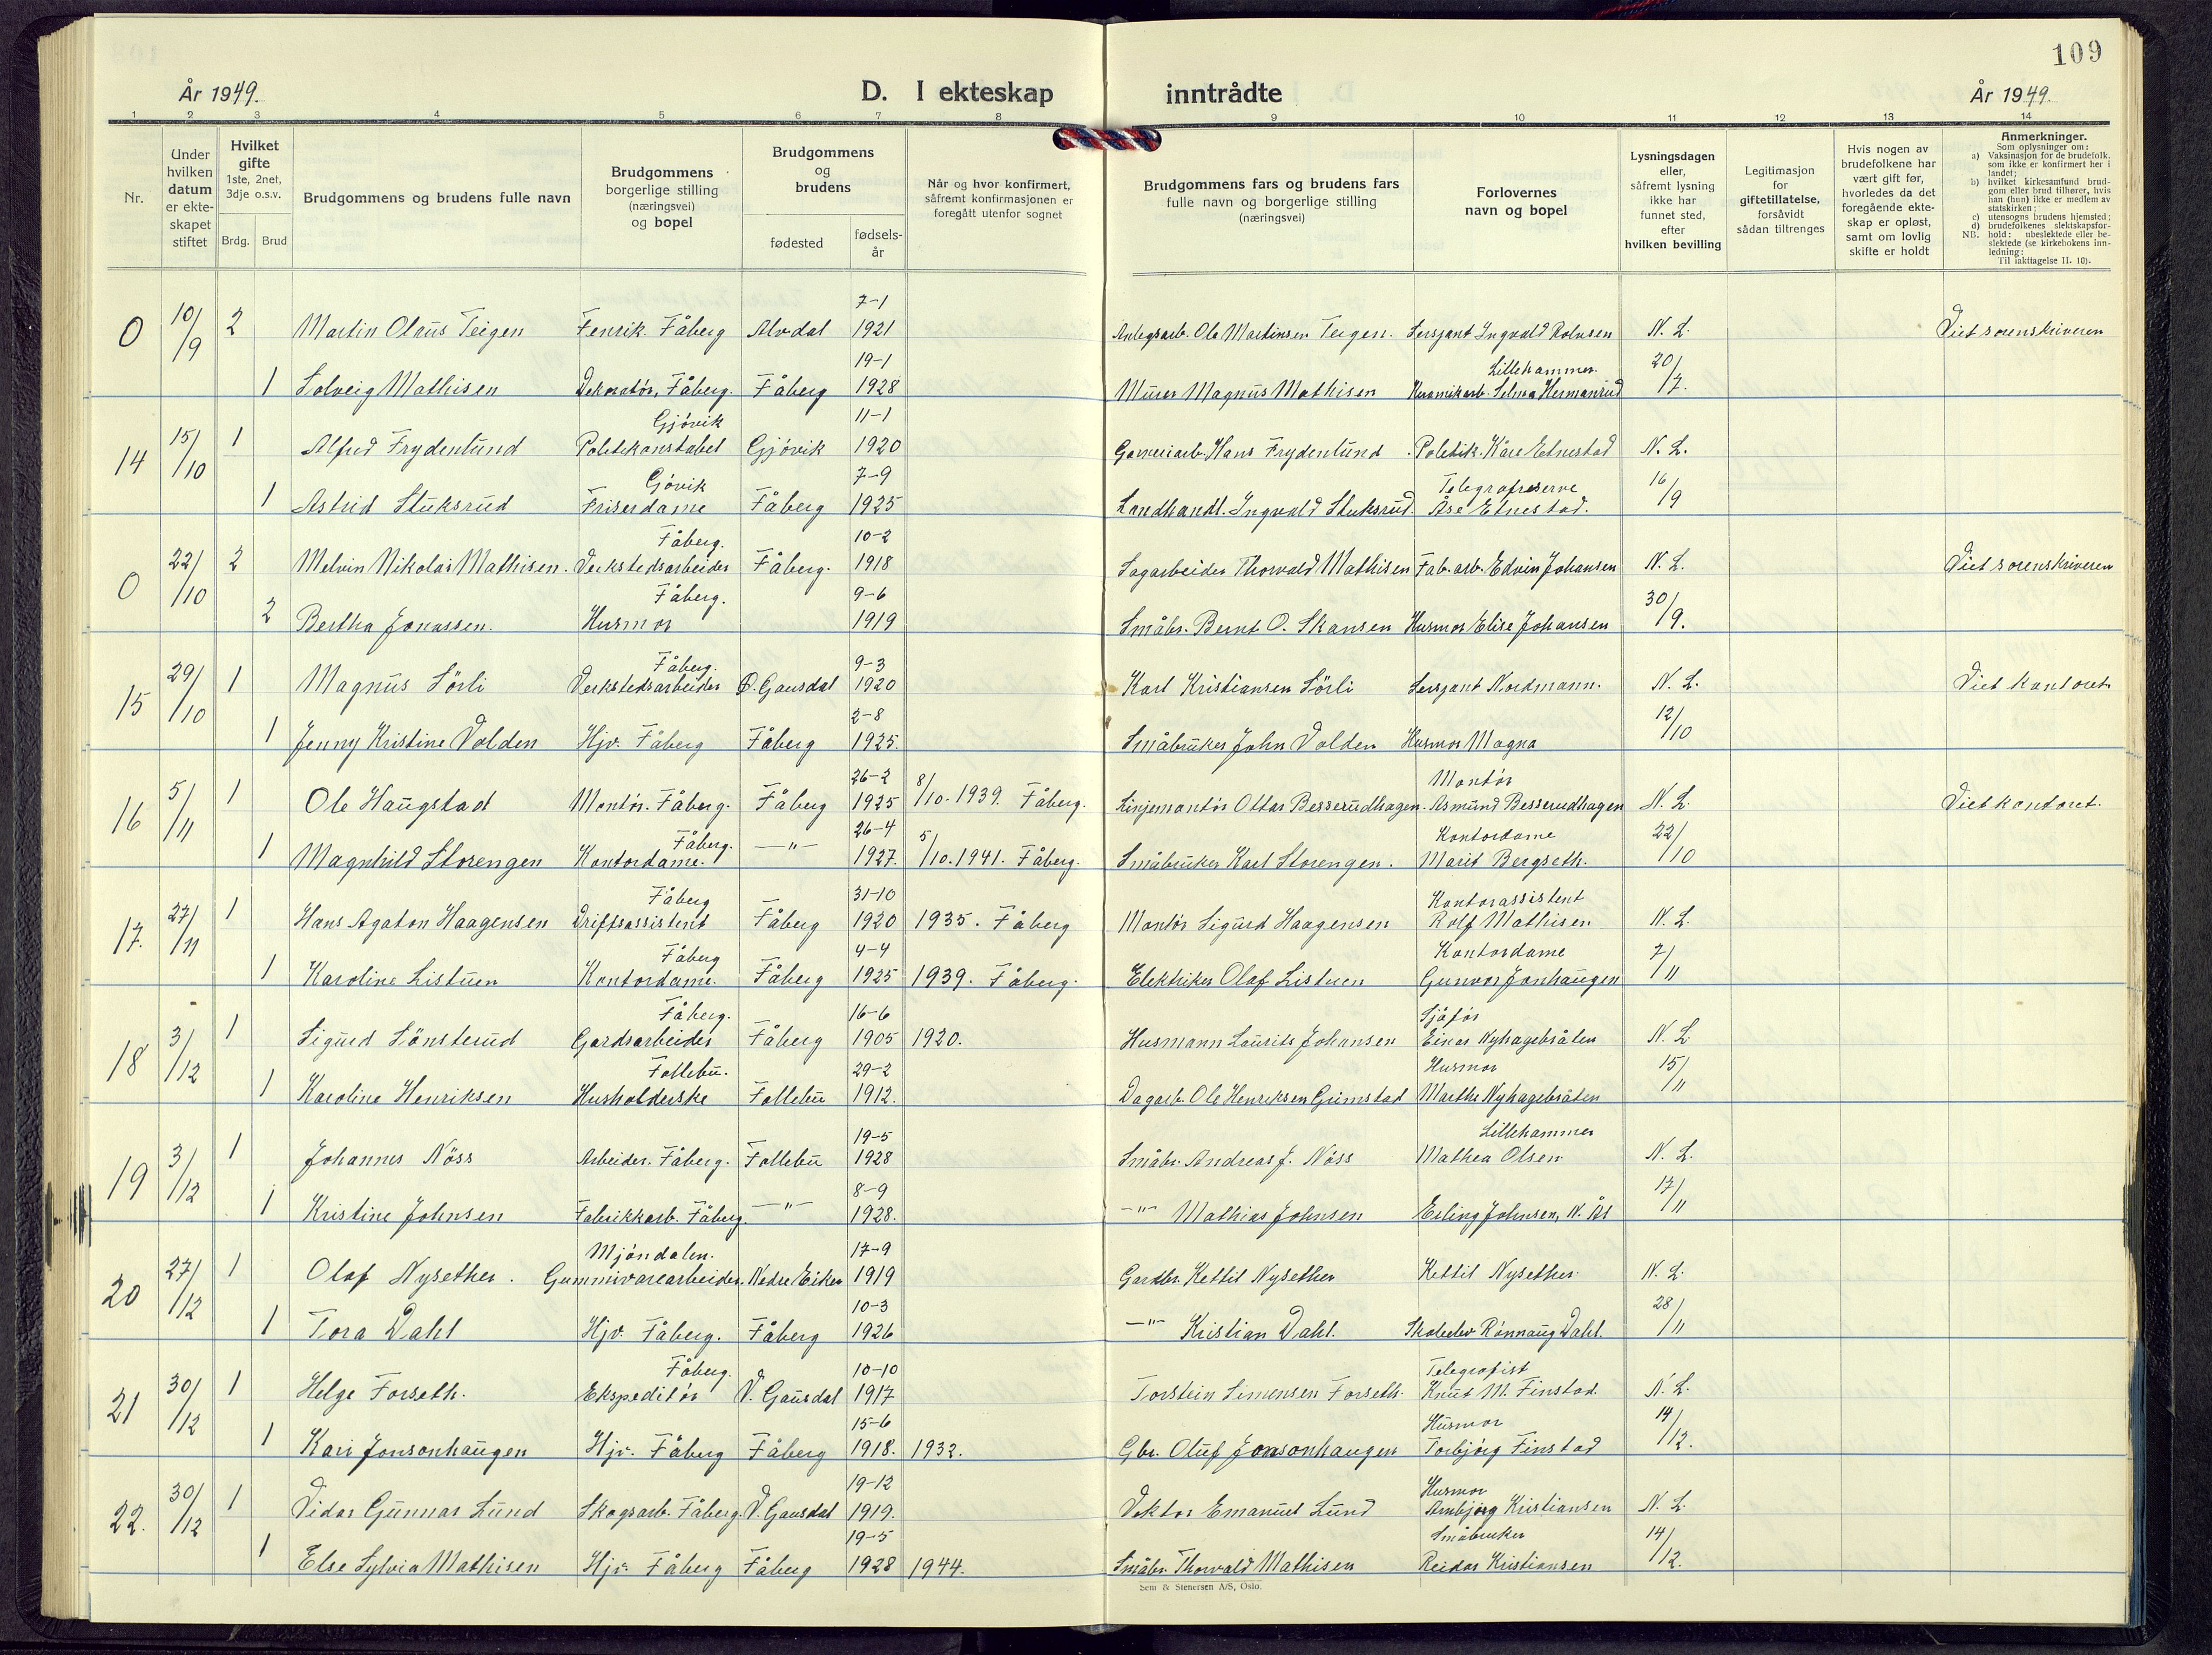 109
År 1949.
D. I ekteskap inntrådte
År 1949.
1 2 3 4 5 6 7 8 9 10 11 12 13 14
Nr.
Under hvilken datum er ekte-skapet stiftet
Hvilket gifte 1ste, 2net, 3dje o.s.v.
Brdg. Brud
Brudgommens og brudens fulle navn
Brudgommens borgerlige stilling (næringsvei) og bopel
Brudgommens og brudens
fødested
fødsels-år
Når og hvor konfirmert, såfremt konfirmasjonen er foregått utenfor sognet
Brudgommens fars og brudens fars fulle navn og borgerlige stilling (næringsvei)
Forlovernes navn og bopel
Lysningsdagen eller, såfremt lysning ikke har funnet sted, efter hvilken bevilling
Legitimasjon for giftetillatelse, forsåvidt sådan tiltrenges
Hvis nogen av brudefolkene har vært gift før, hvorledes da det foregående ekte-skap er opløst, samt om lovlig skifte er holdt
Anmerkninger.
Som oplysninger om:
a) Vaksinasjon for de brudefolk. som ikke er konfirmert her i landet;
b) hvilket kirkesamfund brud-gom eller brud tilhører, hvis han (hun) ikke er medlem av statskirken;
c) utensogns brudens hjemsted;
d) brudefolkenes slektskapsfor-hold: ubeslektede eller be-slektede (se kirkebokens inn-ledning:
NB. Til iakttagelse II. 10).
0 10/9 2 Martin Olaus Teigen Fenrik. Fåberg Alvdal 7-1 1921 Anlegsarb. Ole Martinsen Teigen. Sersjant Ingvald Rolvsen N. L. Viet sorenskriveren
1 Solveig Mathisen Dekoratør, Fåberg. Fåberg 19-1 1928 Murer Magnus Mathisen Lillehammer. Keramikarb. Selma Hermanrud 20/7.
14 15/10 1 Alfred Frydenlund Gjövik Politikonstabel Gjövik 11-1 1920 Garveriarb. Hans Frydenlund Politik. Kåre Etnestad N. L.
1 Astrid Stuksrud Gjövik Friserdame Fåberg 7-9 1925 Landhandl. Ingvald Stuksrud Telegrafreserve Åse Etnestad. 16/9
0 22/10 2 Melvin Nikolai Mathisen. Fåberg. Verkstedsarbeider Fåberg. 10-2 1918 Sagarbeider Thorvald Mathisen Fab. arb. Edvin Johansen N. L. Viet sorenskriveren
2 Bertha Jonassen. Fåberg. Husmor 9-6 1919 Småbr. Bernt O. Skansen Husmor Elise Johansen 30/9.
15 29/10 1 Magnus Sörli Fåberg. Verkstedsarbeider Ö. Gausdal 9-3 1920 Karl Kristiansen Sörli Sersjant Nordmann. N. L. Viet kontoret
1 Jenny Kristine Volden Hjv. Fåberg Fåberg 2-8 1925. Småbruker John Volden Husmor Magna 12/10
16 5/11 1 Ole Haugstad Montör. Fåberg. Fåberg 26-2 1925 8/10-1939. Fåberg. Linjemontör Ottar Besserudhagen. Montör Asmund Besserudhagen N. L. Viet kontoret.
1 Magnhild Storengen Fåberg. Kontordame. —"— 26-4 1927. 5/10.1941. Fåberg. Småbruker Karl Storengen. Kontordame Marit Bergseth. 22/10
17. 27/11 1 Hans Agaton Haagensen Fåberg Driftsassistent Fåberg 31-10 1920 1935. Fåberg Montör Sigurd Haagensen Kontorassistent Rolf Mathisen N. L.
1 Karoline Listuen Fåberg Kontordame. Fåberg 4-4 1925 1939. Fåberg. Elektriker Olaf Listuen Kontordame Gunvor Jonhaugen 7/11
18 3/12 1 Sigurd Sönsterud Fåberg. Gardsarbeider Fåberg 16-6 1905 1920. Husmann Laurits Johansen Sjåför Einar Nyhagebråten N. L
1 Karoline Henriksen Follebu. Husholderske Follebu 29-2 1912. Dagarb. Ole Henriksen Grimstad Husmor Marthe Nyhagebråten 15/11
19 3/12 1 Johannes Nöss Arbeider. Fåberg. Follebu 19-5 1928 Småbr. Andreas J. Nöss Lillehammer Mathea Olsen N. L.
1 Kristine Johnsen Fabrikkarb. Fåberg. —"— 8-9 1928. —"— Mathias Johnsen Erling Johnsen, N. Ål 17/11
20 27/12 1 Olaf Nysether. Mjöndalen. Gummivarearbeider. Nedre Eiker 17-9 1919 Gardbr. Kettil Nysether Kettil Nysether N. L.
1 Tora Dahl Hjv. Fåberg. Fåberg 10-3 1926 —"— Kristian Dahl. Skoleelev Rönnaug Dahl. 28/11
21 30/12 1 Helge Forseth. Fåberg. Ekspeditör V. Gausdal 10-10 1917 Torstein Simensen Forseth. Telegrafist Knut M. Finstad. N. L.
1 Kari Jonsonhaugen Hjv. Fåberg Fåberg 15-6 1918. 1932. Gbr. Oluf Jonsonhaugen Husmor Torbjörg Finstad 14/12.
22. 30/12 1 Vidar Gunnar Lund Skogsarb. Fåberg. V. Gausdal 19-12 1919. Vektor Emanuel Lund Husmor Arnbjörg Kristiansen N. L.
1 Else Sylvia Mathisen Hjv. Fåberg Fåberg 19-5 1928 1944. Småbr. Thorvald Mathisen Småbruker Reidar Kristiansen 14/12.
Sem & Stenersen A/S, Oslo.